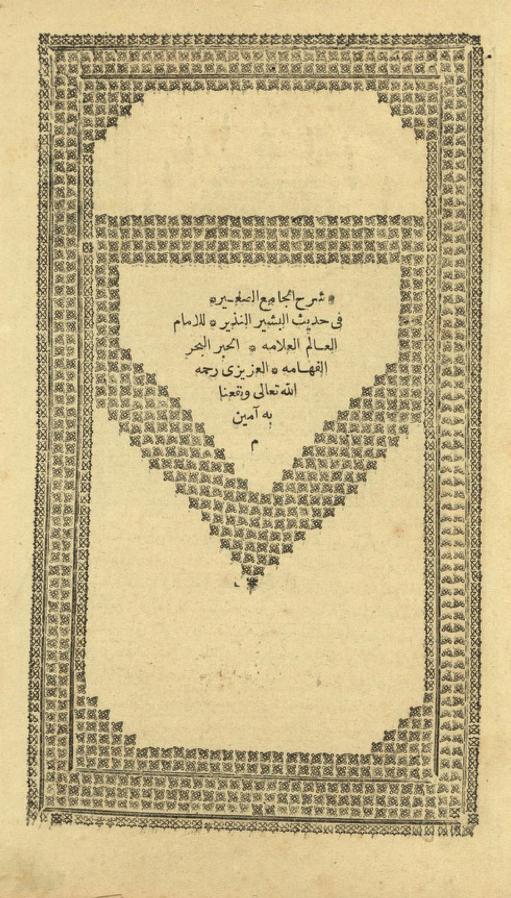 * شرح الجامع الصغير *
فى حديث البشير النذير * للامام
العالم العلامه * الحبر البحر
الفهامه * العزيزى رحمه
الله تعالى ونفعنا
به آمين
م